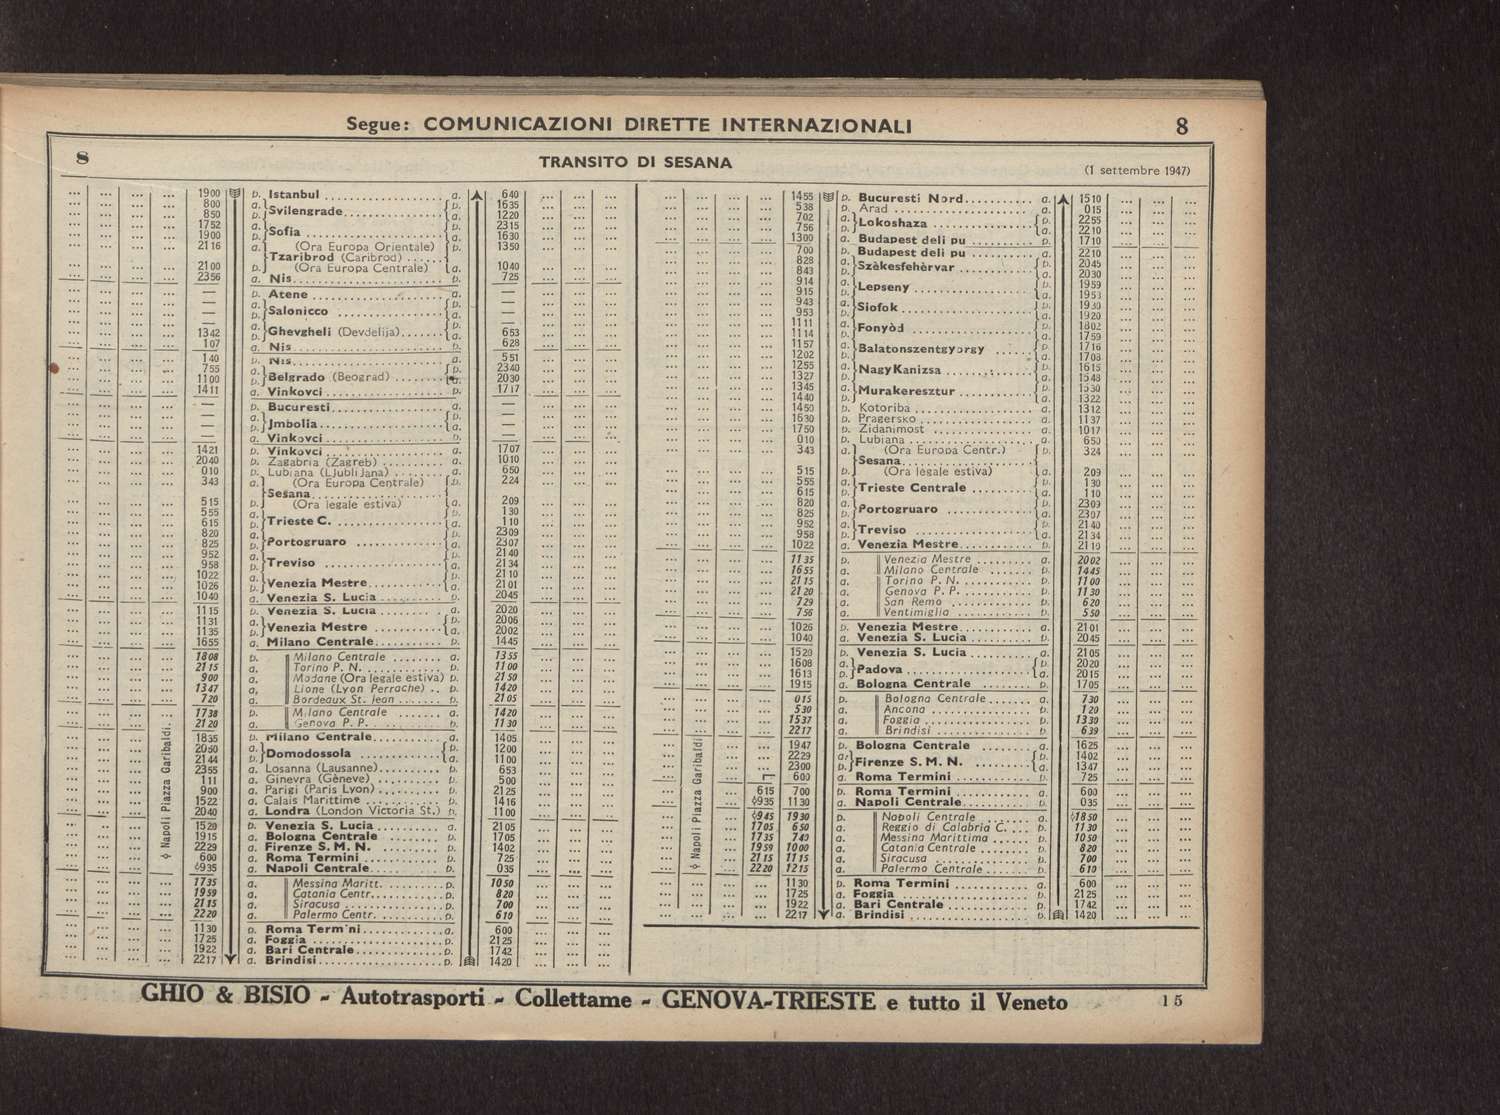 Segue: COMUNICAZIONI DIRETTE INTERNAZIONALI 8
8 TRANSITO DI SESANA (1 settembre 1947)
1900 p. Istanbul a. 640
800 a. Svilengrade p. 1635
850 p. a. 1220
1752 a. Sofia p. 2315
1900 p. a. 1630
2116 a. (Ora Europa Orientale) p. 1350
Tzaribrod (Caribrod)
2100 p. (Ora Europa Centrale) a. 1040
2356 a. Nis p. 725
— p. Atene a. —
— a. Salonicco p. —
— p. a. —
— a. Ghevgheli (Devdelija) p.
1342 p. a. 653
107 a. Nis p. 628
140 p. Nis a. 551
755 a. Belgrado (Beograd) p. 2340
1100 p. a. 2030
1411 a. Vinkovci p. 1717
— p. Bucuresti a. —
— a. Jmbolia p. —
— p. a. —
— a. Vinkovci p. —
1421 p. Vinkovci a. 1707
2040 p. Zagabria (Zagreb) a. 1010
010 p. Lubiana (LJubliJana) a. 650
343 a. (Ora Europa Centrale) p. 224
Sesana
515 p. (Ora legale estiva) a. 209
555 a. Trieste C. p. 130
615 p. a. 110
820 a. Portogruaro p. 2309
825 p. a. 2307
952 a. Treviso p. 2140
958 p. a. 2134
1022 a. Venezia Mestre p. 2110
1026 p. a. 2101
1040 a. Venezia S. Lucia p. 2045
1115 p. Venezia S. Lucia a. 2020
1131 a. Venezia Mestre p. 2006
1135 p. a. 2002
1655 a. Milano Centrale p. 1445
1808 p. Milano Centrale a. 1355
2115 a. Torino P. N. p. 1100
900 a. Modane (Ora legale estiva) p. 2150
1347 a. Lione (Lyon Perrache) p. 1420
720 a. Bordeaux St. Jean p. 2105
1738 p. Milano Centrale a. 1420
2120 a. Genova P. P. p. 1130
1835 p. Milano Centrale a. 1405
2050 a. Domodossola p. 1200
2144 p. a. 1100
2355 a. Losanna (Lausanne) p. 653
111 a. Ginevra (Gèneve) p. 500
900 a. Parigi (Paris Lyon) p. 2125
1522 a. Calais Marittime p. 1416
2040 a. Londra (London Victoria St.) p. 1100
1520 p. Venezia S. Lucia a. 2105
1915 a. Bologna Centrale p. 1705
2229 a. Firenze S. M. N. p. 1402
600 a. Roma Termini p. 725
◊935 a. Napoli Centrale p. 035
1735 a. Messina Maritt. p. 1050
1959 a. Catania Centr. p. 820
2115 a. Siracusa p. 700
2220 a. Palermo Centr. p. 610
1130 p. Roma Termini a. 600
1725 a. Foggia p. 2125
1922 a. Bari Centrale p. 1742
2217 a. Brindisi p. 1420
◊ Napoli Piazza Garibaldi
1455 p. Bucuresti Nord a. 1510
538 p. Arad a. 015
702 a. Lokoshaza p. 2255
756 p. a. 2210
1300 a. Budapest deli pu p. 1710
700 p. Budapest deli pu a. 2210
828 a. Szèkesfehèrvar p. 2045
843 p. a. 2030
914 a. Lepseny p. 1959
915 p. a. 1953
943 a. Siofok p. 1930
953 p. a. 1920
1111 a. Fonyòd p. 1802
1114 p. a. 1759
1157 a. Balatonszentgyorgy p. 1716
1202 p. a. 1708
1255 a. NagyKanizsa p. 1615
1327 p. a. 1548
1345 a. Murakeresztur p. 1530
1440 p. a. 1322
1450 p. Kotoriba a. 1312
1630 p. Pragersko a. 1137
1750 p. Zidanimost a. 1017
010 p. Lubiana a. 650
343 a. (Ora Europa Centr.) p. 324
Sesana
515 p. (Ora legale estiva) a. 209
555 a. Trieste Centrale p. 130
615 p. a. 110
820 a. Portogruaro p. 2309
825 p. a. 2307
952 a. Treviso p. 2140
958 p. a. 2134
1022 a. Venezia Mestre p. 2110
1135 p. Venezia Mestre a. 2002
1655 a. Milano Centrale p. 1445
2115 a. Torino P. N. p. 1100
2120 a. Genova P. P. p. 1130
729 a. San Remo p. 620
756 a. Ventimiglia p. 550
1026 p. Venezia Mestre a. 2101
1040 a. Venezia S. Lucia p. 2045
1520 p. Venezia S. Lucia a. 2105
1608 a. Padova p. 2020
1613 p. a. 2015
1915 a. Bologna Centrale p. 1705
015 p. Bologna Centrale a. 730
530 a. Ancona p. 120
1537 a. Foggia p. 1330
2217 a. Brindisi p. 639
1947 p. Bologna Centrale a. 1625
2229 a. Firenze S. M. N. p. 1402
2300 p. a. 1347
600 a. Roma Termini p. 725
615 700 p. Roma Termini a. 600
◊935 1130 a. Napoli Centrale p. 035
◊945 1930 p. Napoli Centrale a. ◊1850
1705 650 a. Reggio di Calabria C. p. 1130
1735 740 a. Messina Marittima p. 1050
1959 1000 a. Catania Centrale p. 820
2115 1115 a. Siracusa p. 700
2220 1215 a. Palermo Centrale p. 610
1130 p. Roma Termini a. 600
1725 a. Foggia p. 2125
1922 a. Bari Centrale p. 1742
2217 a. Brindisi p. 1420
◊ Napoli Piazza Garibaldi
GHIO & BISIO - Autotrasporti - Collettame - GENOVA-TRIESTE e tutto il Veneto 15